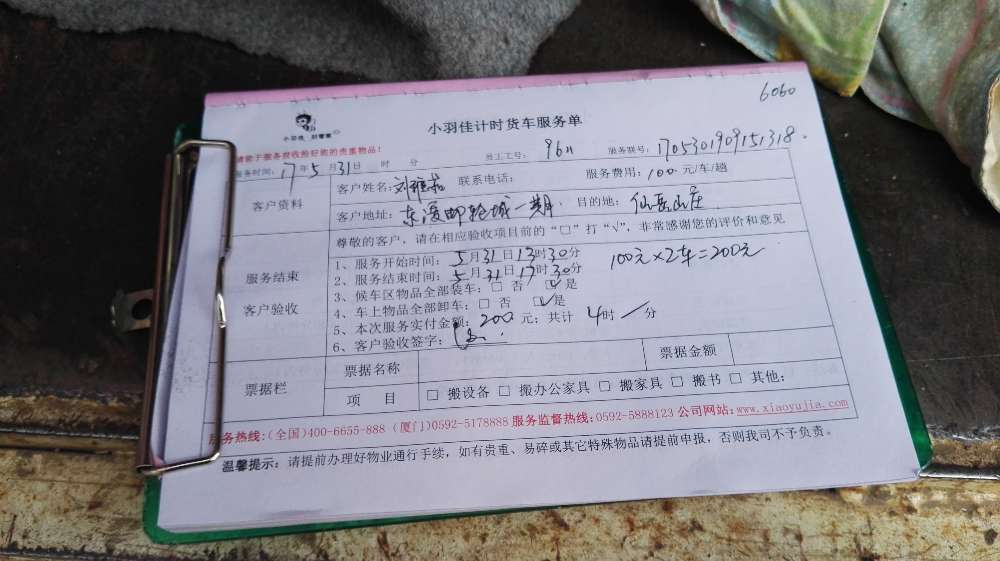 6060
小羽佳计时货车服务单
请前于服务前收捡好您的贵重物品!
服务时间: 17年5月31日 时 分 员工工号: 服务联号: 1705301909151318.
客户资料
客户姓名: 刘 联系电话: 服务费用: 100元/车/趟
客户地址: 东渡邮轮城一期 、目的地: 仙岳山庄
服务结束
客户验收
尊敬的客户,请在相应验收项目前的“□”打“√”,非常感谢您的评价和意见
1、服务开始时间: 5月31日13时30分 100元×2车=200元
2、服务结束时间: 5月31日17时30分
3、候车区物品全部装车: □ 否 ☑是
4、车上物品全部卸车: □ 否 ☑是
5、本次服务实付金额: 200 元; 共计 4时/分
6、客户验收签字:
票据栏
票据名称 票据金额
项 目 □ 搬设备 □ 搬办公家具 □ 搬家具 □ 搬书 □ 其他:
服务热线:(全国)400-6655-888 (厦门)0592-5178888 服务监督热线:0592-5888123 公司网站:www.xiaoyujia.com
温馨提示: 请提前办理好物业通行手续,如有贵重、易碎或其它特殊物品请提前申报,否则我司不予负责。